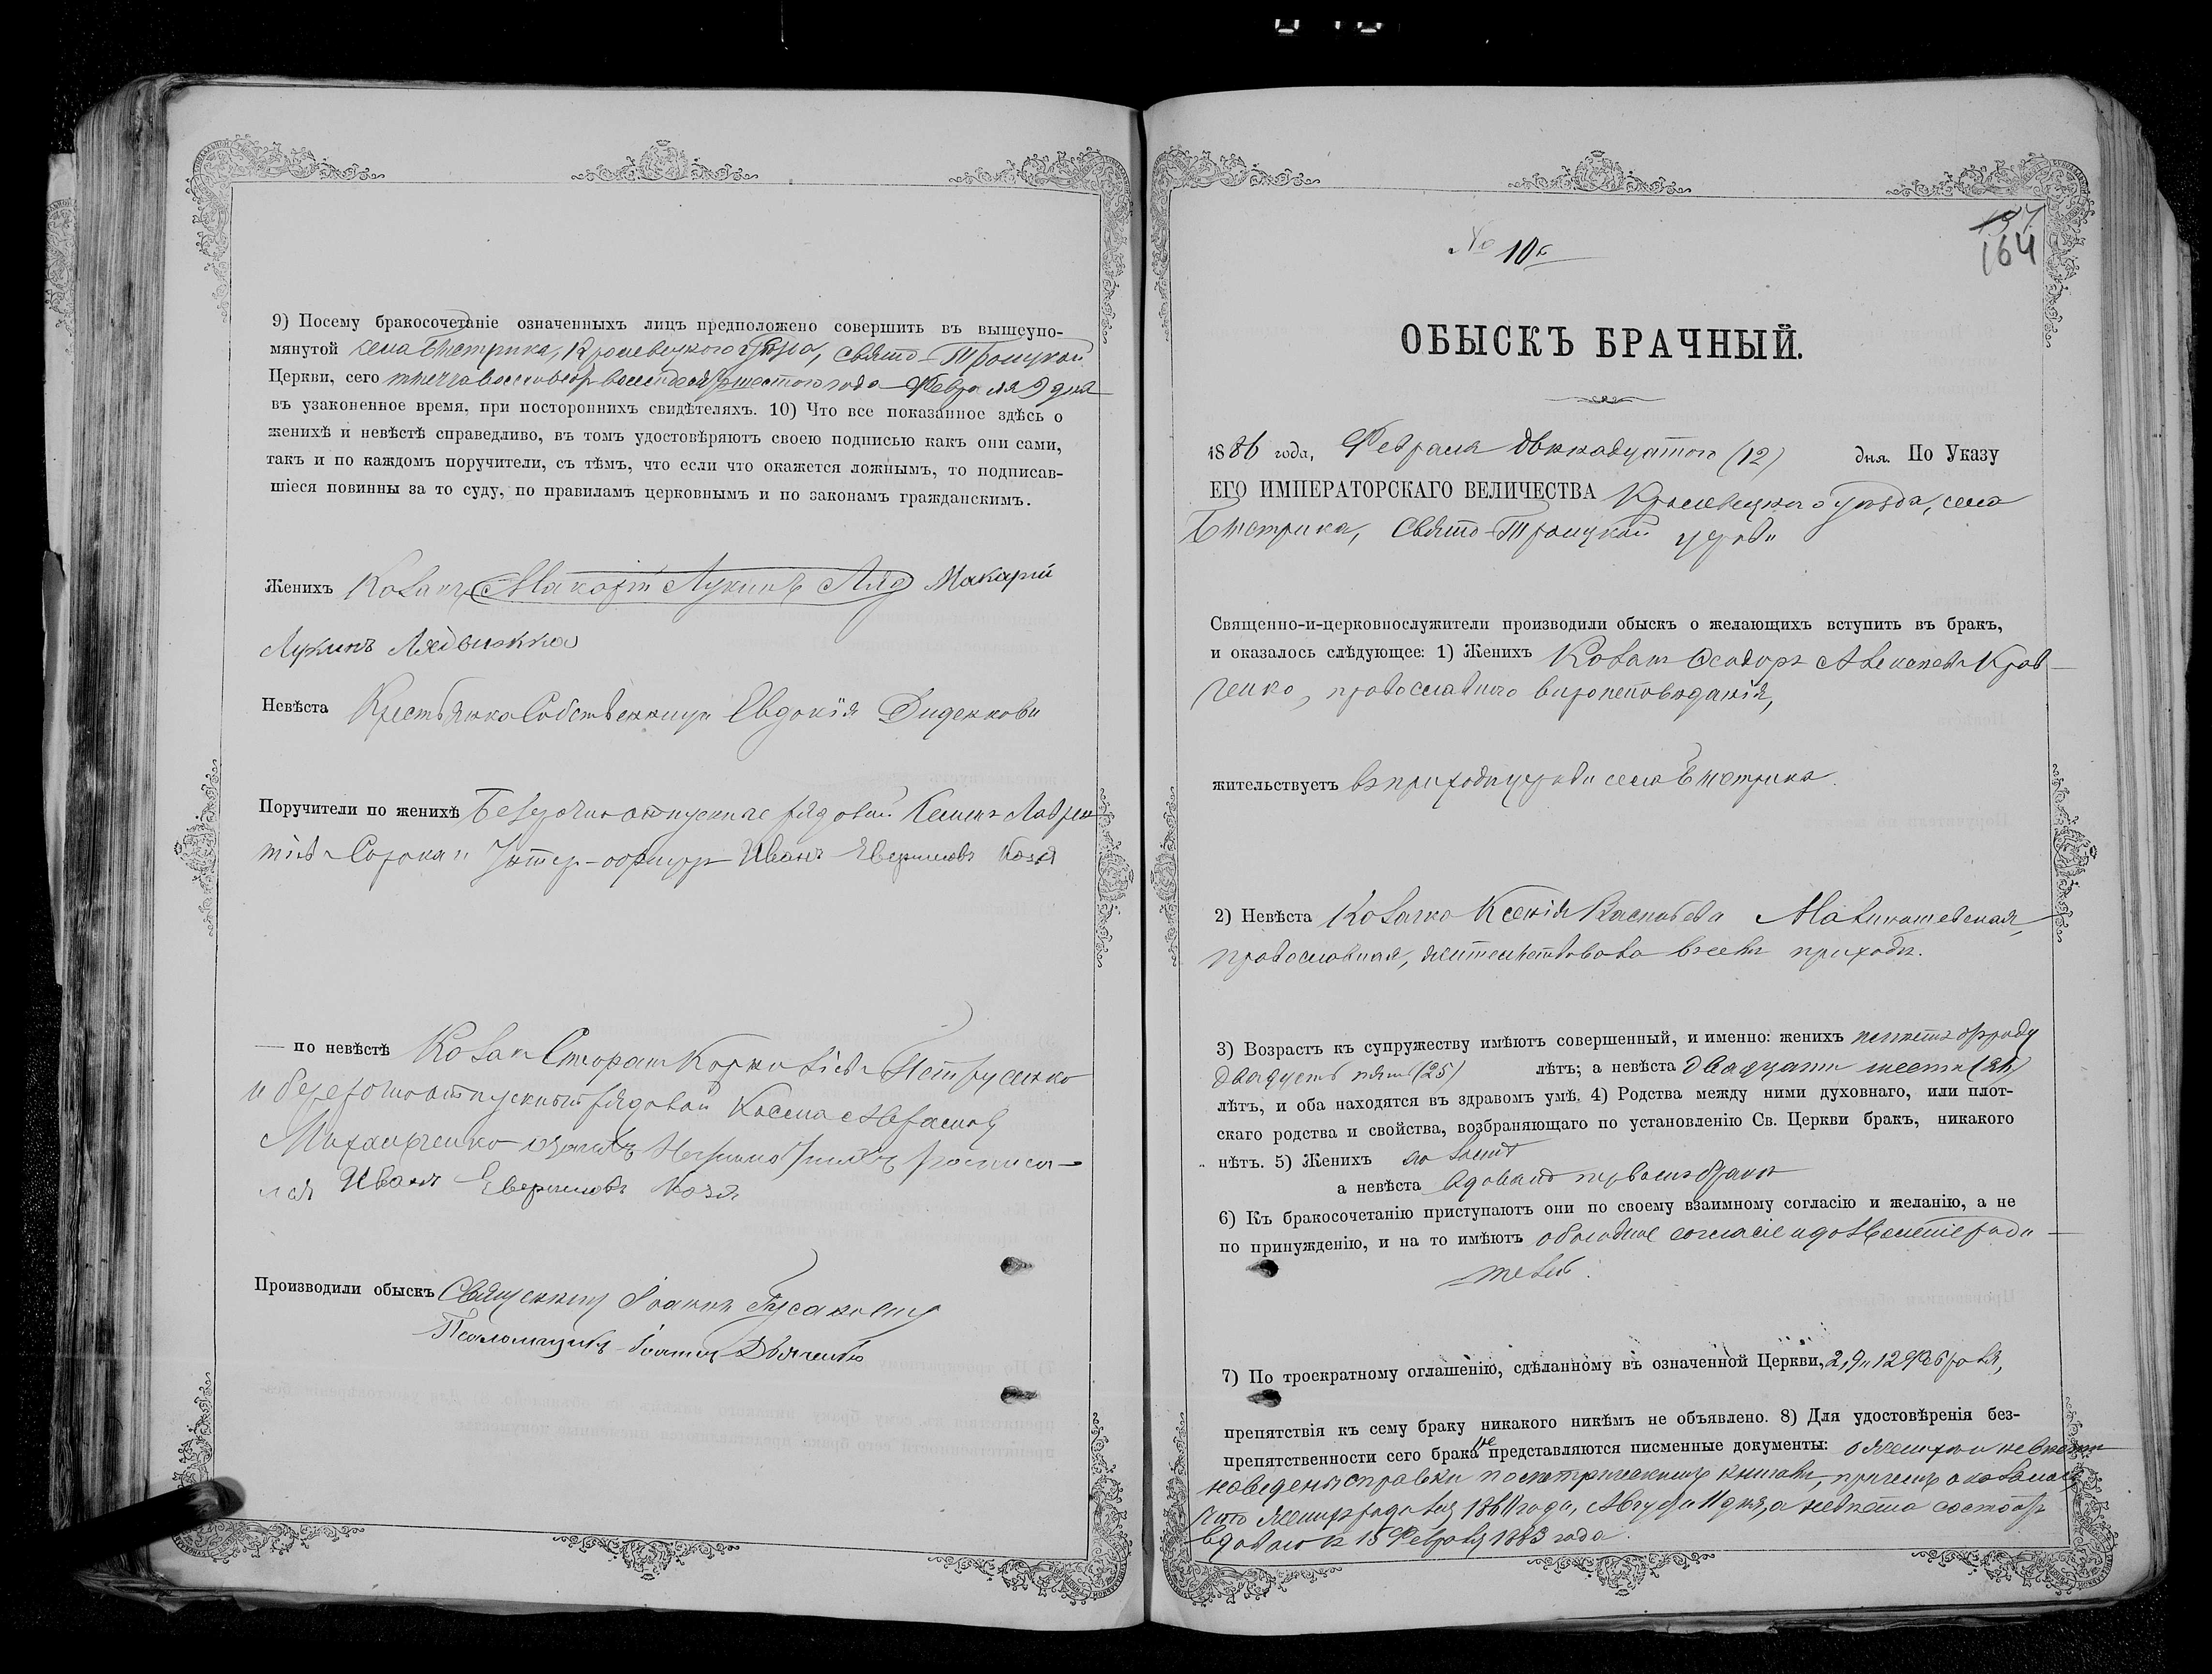 9) Посему бракосочетаніе означенныхъ лицъ предположено совершить въ вышеупо-
мянутой села Быстрика, Кролевецкого уѣзда, Свято-Троицкой
Церкви, сего тысяча восемьсотъ восемьдесятъ шестого года Февраля 9 дня
въ узаконенное время, при постороннихъ свидѣтеляхъ. 10) Что все показанное здѣсь о
женихѣ и невѣстѣ справедливо, въ томъ удостовѣряютъ своею подписью какъ они сами,
такъ и по каждомъ поручители, съ тѣмъ, что если что окажется ложнымъ, то подписав-
шіеся повинны за то суду, по правиламъ церковнымъ и по законамъ гражданскимъ.
Женихъ Козакъ Макарій Лукинъ Ляд Макарій
Лукинъ
Невѣста Крестьянка Собственница Евдокія Диденкова
Поручители по женихѣ Безсрочно отпускные рядовой Лаврен
тіевъ Сорока и Унтер-офицеръ Иванъ Аверкіевъ Козя
— по невѣстѣ Козакъ Петрусенко
и безсрочноотпускный рядовой Косма
Михайленко росписа-
лся Иванъ Козя
Производили обыскъ Священникъ Іоаннъ
Псаломщикъ Іоаннъ Дьяченко
№ 10й
157
164
ОБЫСКЪ БРАЧНЫЙ.
1886 года, Февраля двенадцатого (12) дня. По Указу
ЕГО ИМПЕРАТОРСКАГО ВЕЛИЧЕСТВА Кролевецкого уѣзда, села
Быстрика, Свято-Троицкой церкви
Священно-и-церковнослужители производили обыскъ о желающихъ вступить въ бракъ,
и оказалось слѣдующее: 1) Женихъ Козакъ Ѳеодоръ Алексѣевъ Крав
ченко, православного вѣроисповѣданія,
жительствуетъ въ приходѣ церкви села Быстрика.
2) Невѣста Козачка Ксенія Васильева
православная, жительствовала в семъ приходѣ.
3) Возрастъ къ супружеству имѣютъ совершенный, и именно: женихъ имѣетъ отъ роду
двадцать пять (25) лѣтъ; а невѣста двадцати шести (26)
лѣтъ, и оба находятся въ здравомъ умѣ. 4) Родства между ними духовнаго, или плот-
скаго родства и свойства, возбраняющаго по установленію Св. Церкви бракъ, никакого
нѣтъ. 5) Женихъ холостъ
а невѣста вдова по первомъ бракѣ
6) Къ бракосочетанію приступаютъ они по своему взаимному согласію и желанію, а не
по принужденію, и на то имѣютъ обоюдное согласіе и дозволеніе роди
телей.
7) По троекратному оглашенію, сдѣланному въ означенной Церкви, 2, 9 и 12 Февраля,
препятствія къ сему браку никакого никѣмъ не объявлено. 8) Для удостовѣренія без-
препятственности сего брака не представляются писменные документы: о женихѣ и невѣстѣ
наведены справки по метрическимъ книгамъ, причемъ оказалось,
что женихъ родился 1860 года, Августа 11 дня, а невѣста состоитъ
вдовою съ 15 Февраля 1883 года.